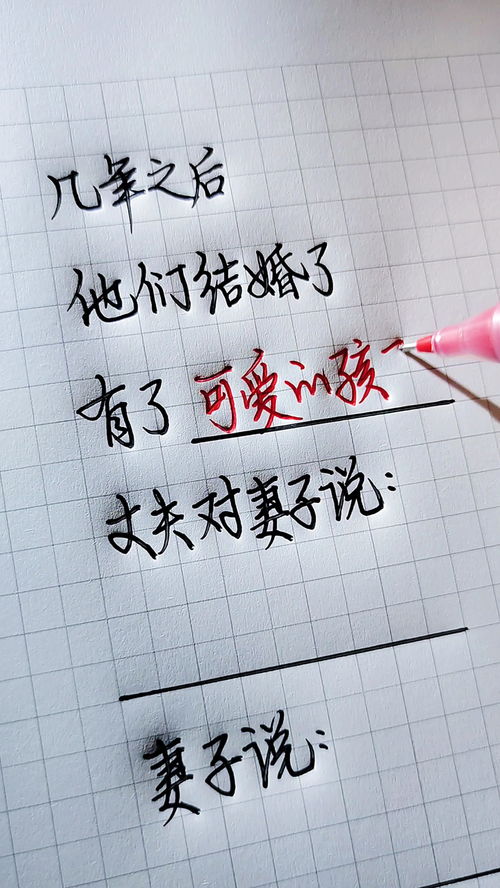 几年之后
他们结婚了
有了 可爱的孩
丈夫对妻子说：
妻子说：